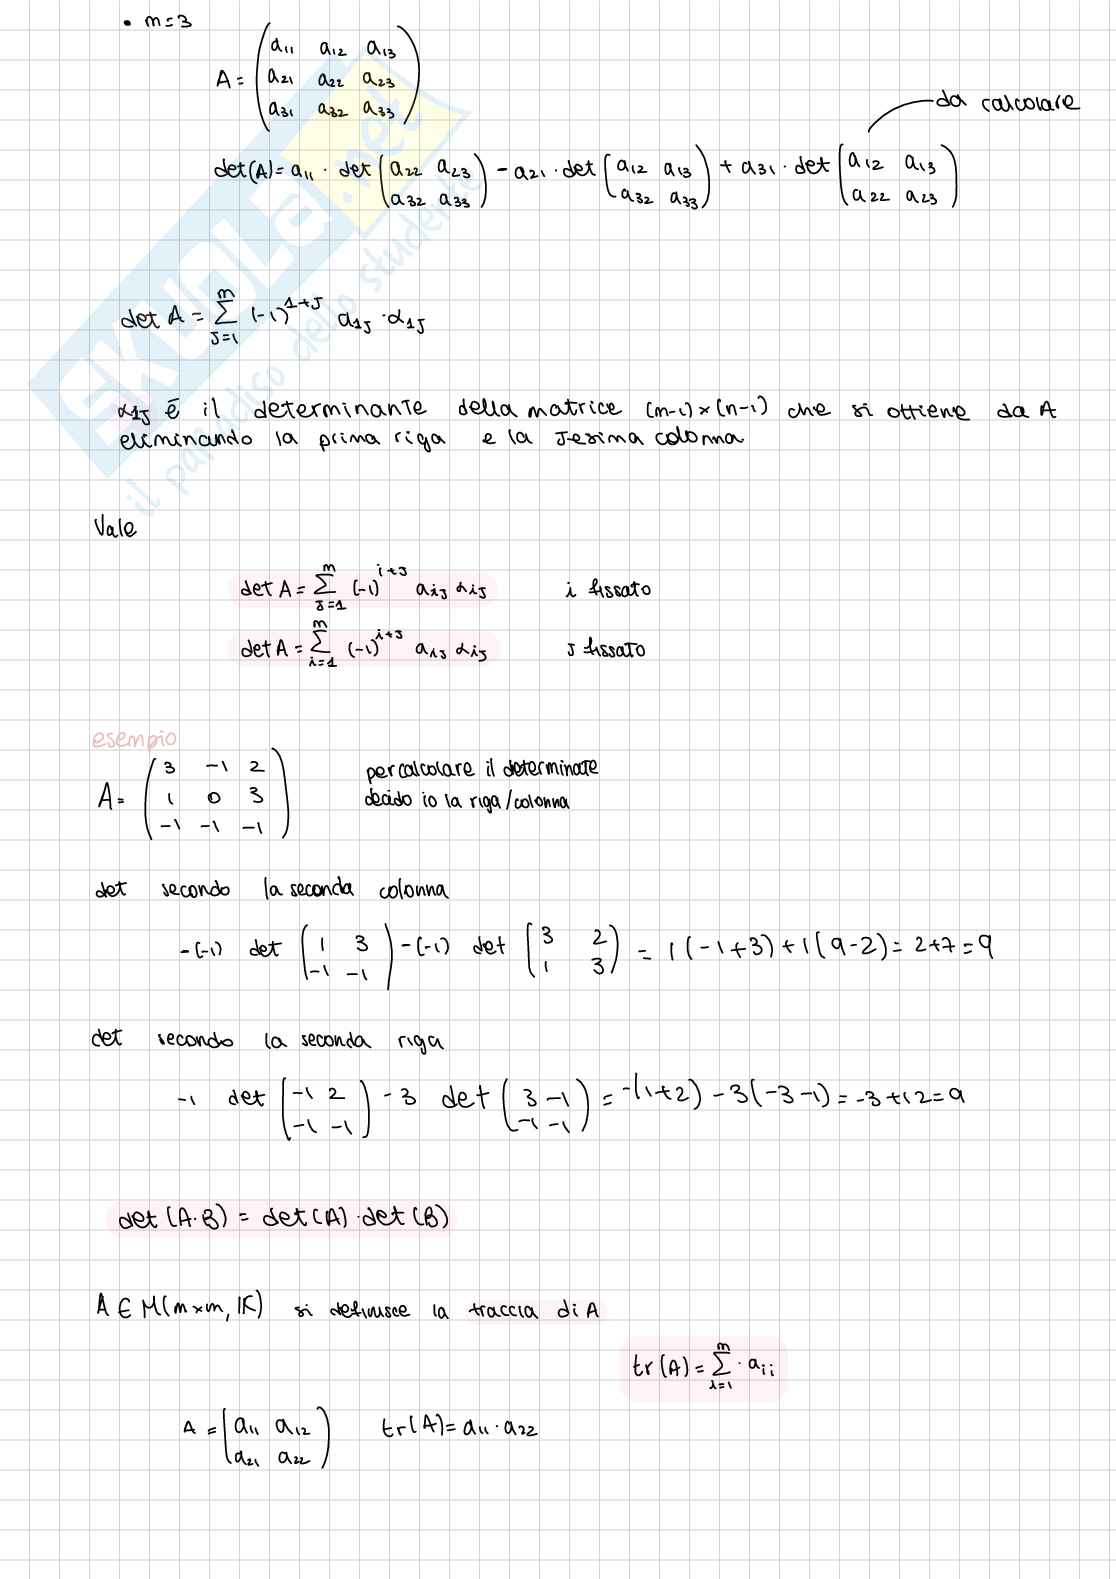 • m=3
A = ( a11 a12 a13
a21 a22 a23
a31 a32 a33 )
da calcolare
det(A) = a11 · det ( a22 a23 ; a32 a33 ) - a21 · det ( a12 a13 ; a32 a33 ) + a31 · det ( a12 a13 ; a22 a23 )
det A = Σ_{J=1}^{m} (-1)^{1+J} a1J · α1J
α1J è il determinante della matrice (m-1)×(n-1) che si ottiene da A
eliminando la prima riga e la Jesima colonna
Vale
det A = Σ_{J=1}^{m} (-1)^{i+J} aiJ αiJ i fissato
det A = Σ_{i=1}^{m} (-1)^{i+J} aiJ αiJ J fissato
esempio
A = ( 3 -1 2
1 0 3
-1 -1 -1 )
per calcolare il determinate
decido io la riga/colonna
det secondo la seconda colonna
-(-1) det ( 1 3 ; -1 -1 ) - (-1) det ( 3 2 ; 1 3 ) = 1(-1+3)+1(9-2) = 2+7 = 9
det secondo la seconda riga
-1 det ( -1 2 ; -1 -1 ) - 3 det ( 3 -1 ; -1 -1 ) = -(1+2) - 3(-3-1) = -3+12 = 9
det (A·B) = det(A) · det(B)
A ∈ M(m×m, K) si definisce la traccia di A
tr(A) = Σ_{i=1}^{m} · aii
A = ( a11 a12
a21 a22 )
tr(A) = a11 · a22
SKUOLA.net
il paradiso dello studente